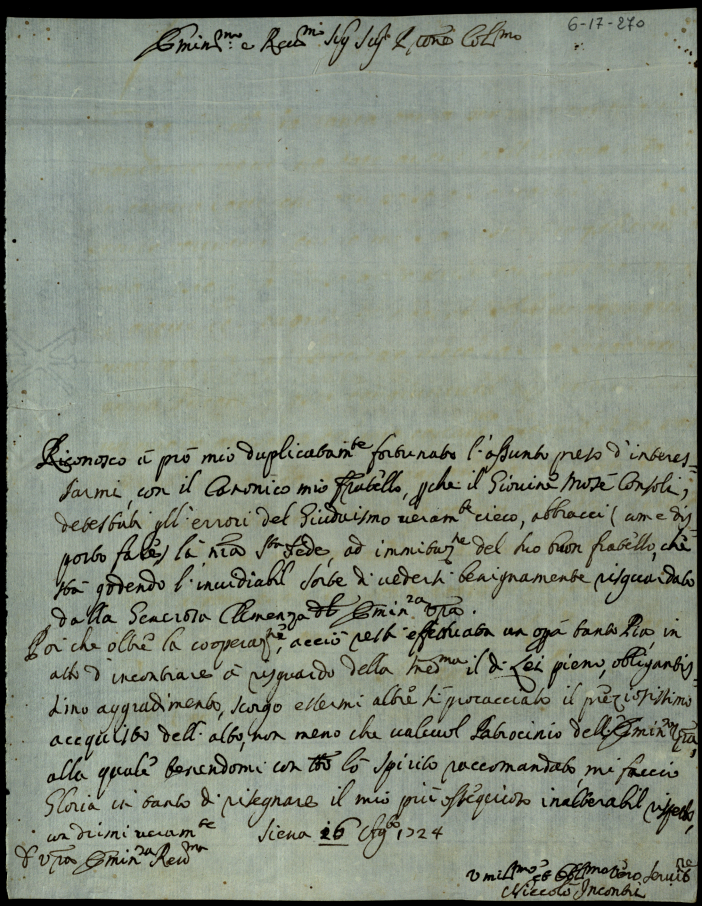 6-17-270
Emin.mo e Rev.mo Sig Sig.r P.rone Col.mo
Riconosco à prò mio duplicatam.te fortunato l'assunto preso d'interes=
sarmi, con il Canonico mio Fratello, p che il Giovine Mosè Consoli,
detestati gli errori del Giudaismo veram.te cieco, abbracci (come dis
posto fare) la nra S.ta Fede, ad immitaz.ne del suo buon fratello, che
stà godendo l'invidiabil sorte di vedersi benignamente risguardato
dalla Generosa Clemenza dell' Emin.za Vra.
Poi che oltre la cooperaz.ne, acciò resti effettuata un opa tanto Pia, in
atto d'incontrare à risguardo della med.ma il di Lei pieno, obligantis=
simo aggradimento, scorgo essermi altresì procacciato il preziosissimo
acquisto dell'alto, non meno che valevol Patrocinio dell'Emin.za Vra,
alla quale tenendomi con tto lo Spirito raccomandato mi faccio
Gloria in tanto di risegnare il mio più ossequioso inalterabil rispetto,
con dirmi veram.te Siena 26 Ag.to 1724
D Vra Emin.za Rev.ma
Umil.mo et Obl.mo Vero Servit.re
Niccolò Incontri